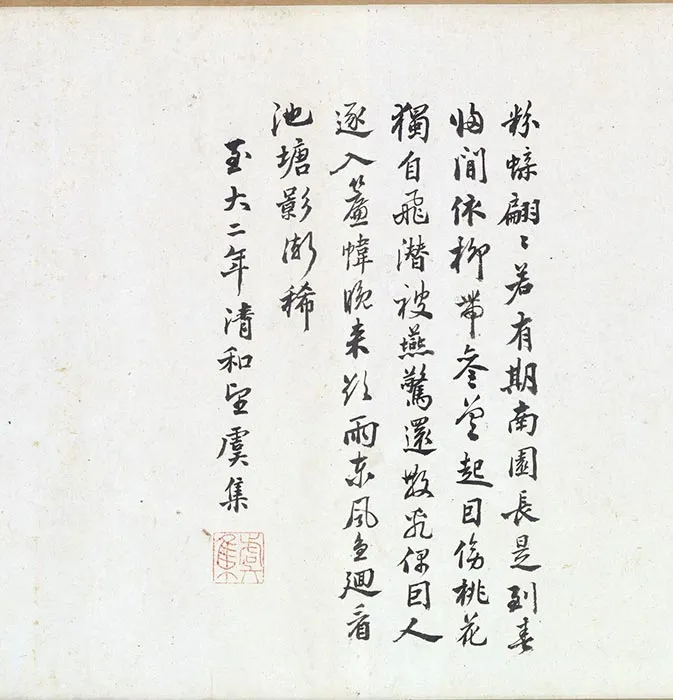 粉蝶翩〻若有期南園長是到春
歸閒依柳帶參差起困傍桃花
獨自飛潛被燕驚還散乱偶因人
逐入簾幃晚来欲雨東風急迴看
池塘影漸稀
至大二年清和望虞集
虞集